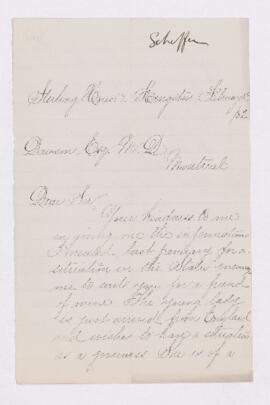 Scheffer
Sterling House Kingston
/82
Dawson Esq M.D
Montreal
Dear Sir
Your kindness to me
in giving me the information
I needed last January for a
situation in the States
me to write you for a friend
of mine. The young lady
is just arrived from England
and wishes to have a situation
as a governess. She is of a